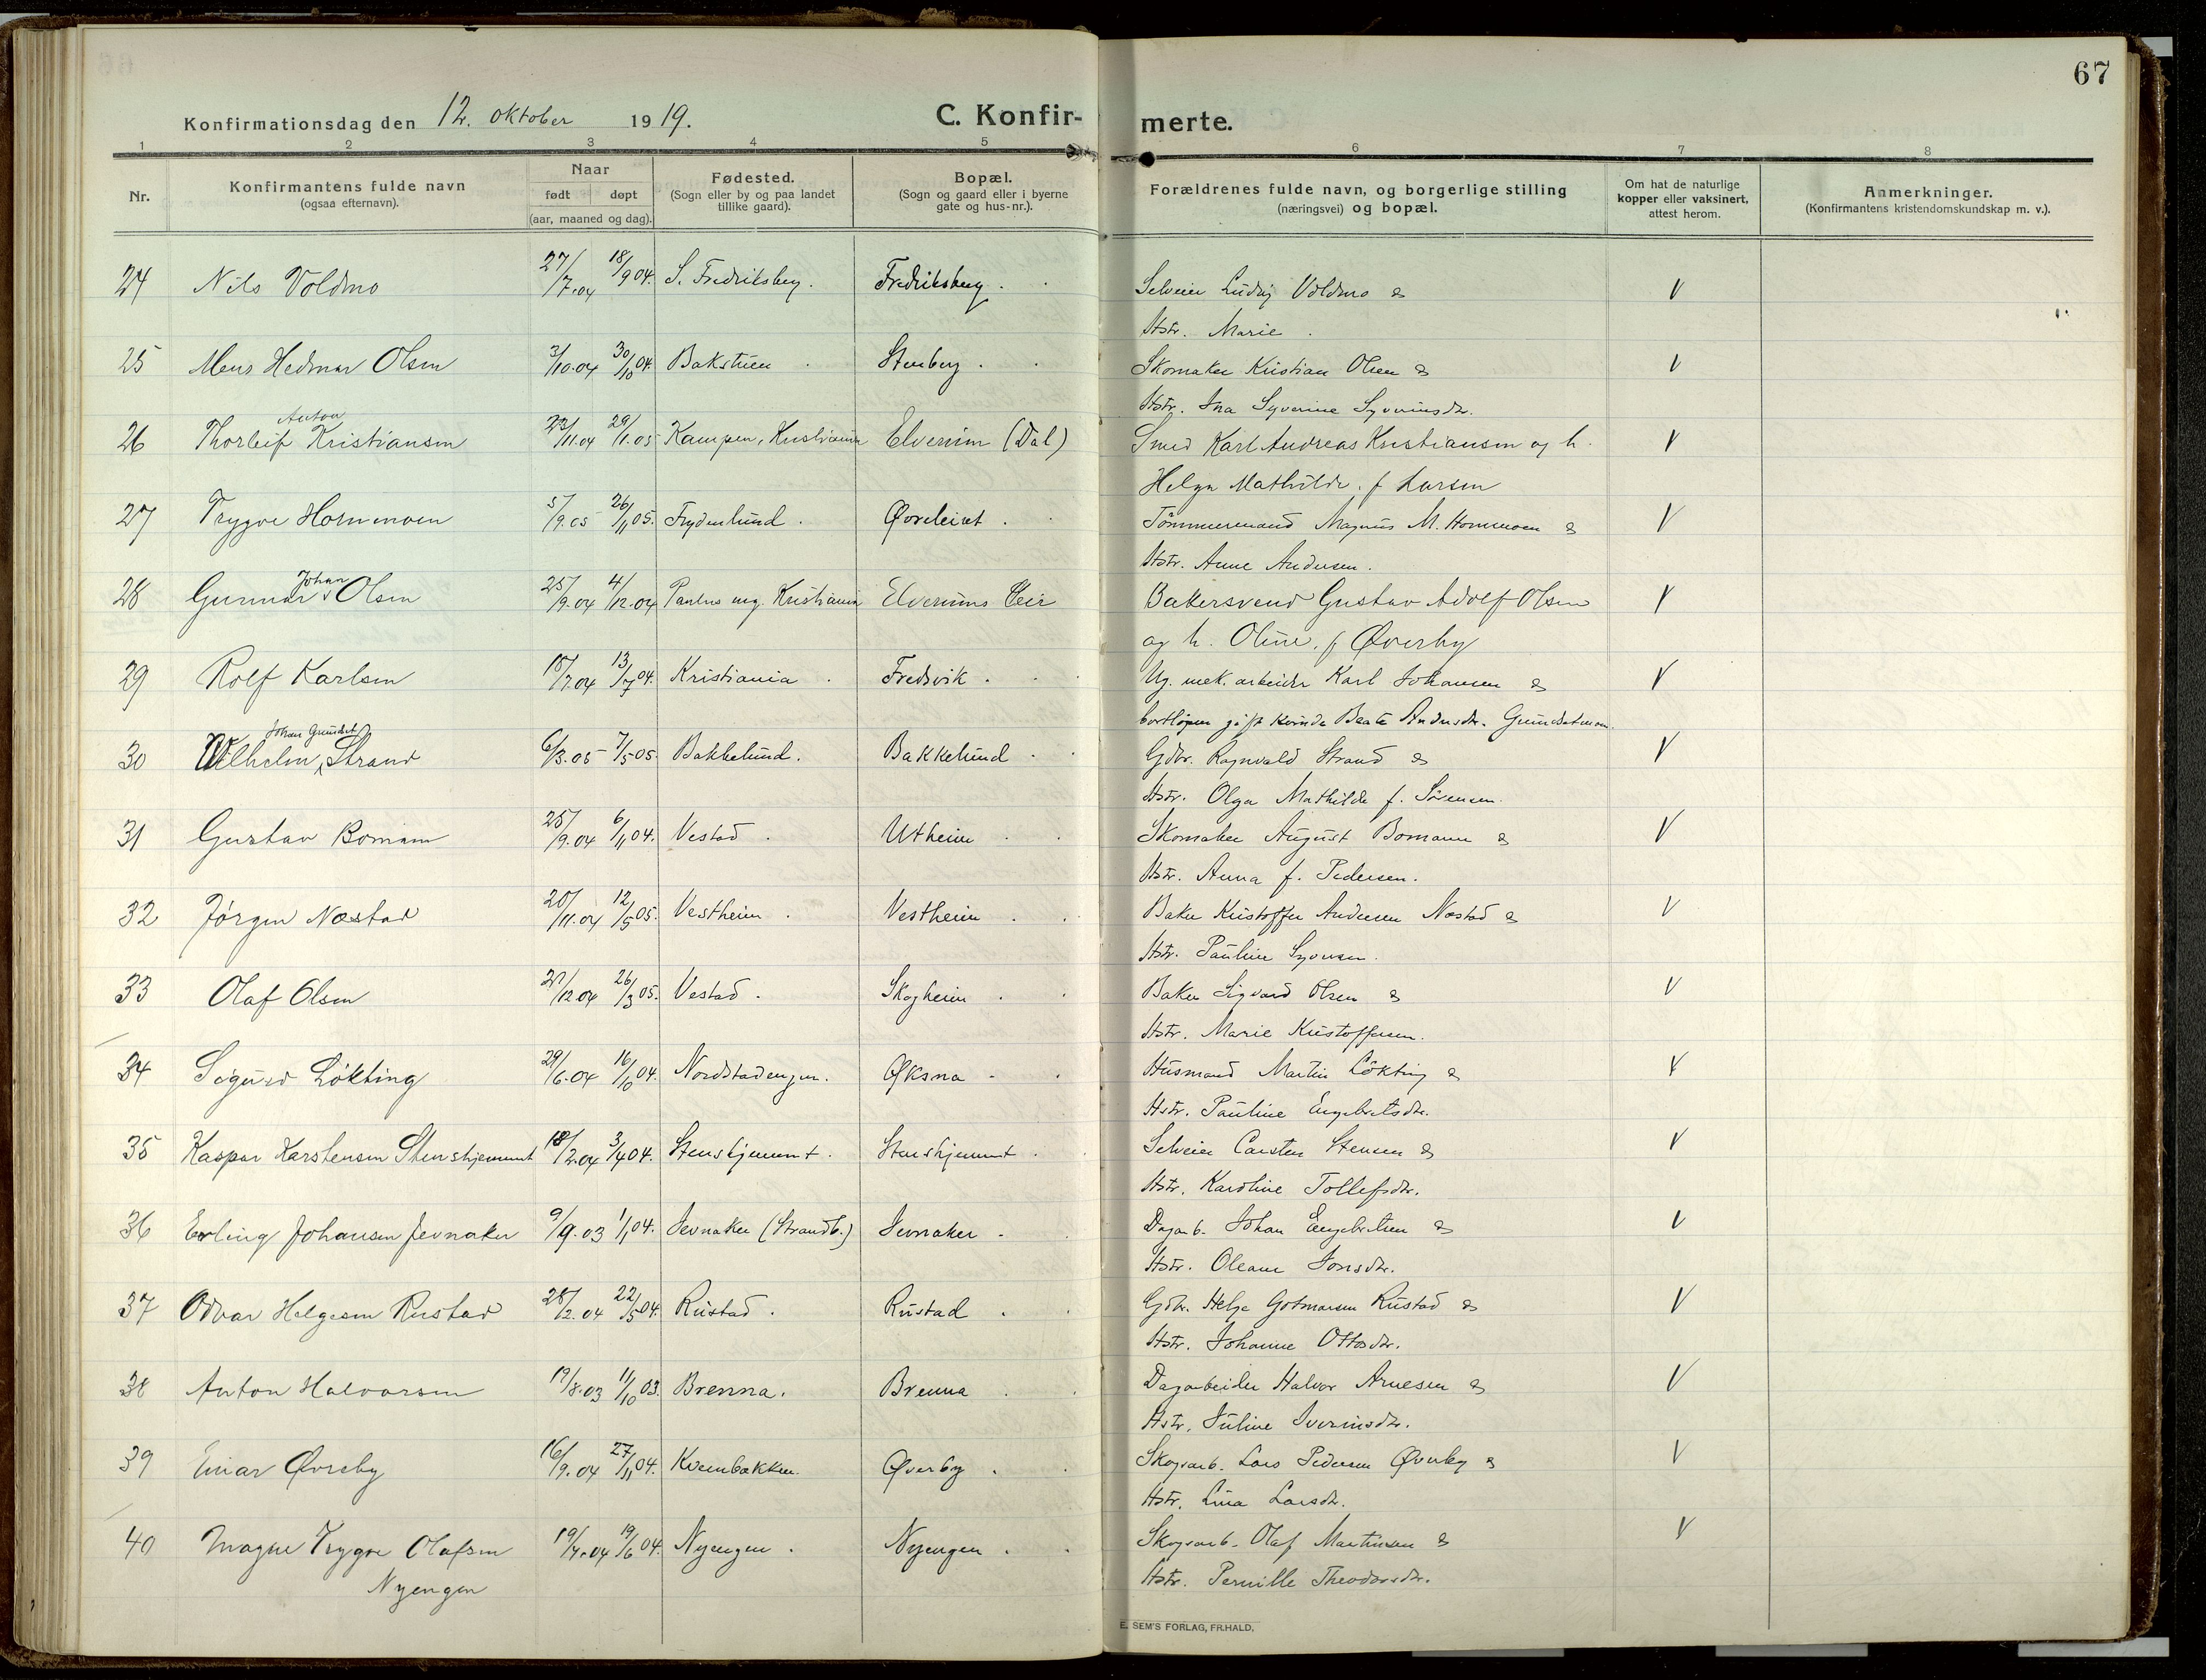 67
Konfirmationsdag den 12. oktober 1919.
C. Konfir-
merte.
1 2 3 4 5 6 7 8
Nr.
Konfirmantens fulde navn
(ogsaa efternavn).
Naar
født døpt
(aar, maaned og dag).
Fødested.
(Sogn eller by og paa landet
tillike gaard).
Bopæl.
(Sogn og gaard eller i byerne
gate og hus-nr.).
Forældrenes fulde navn, og borgerlige stilling
(næringsvei) og bopæl.
Om hat de naturlige
kopper eller vaksinert,
attest herom.
Anmerkninger.
(Konfirmantens kristendomskundskap m. v.).
24 Nils Voldmo 27/7.04 18/9 04. S. Fredriksberg. Fredriksberg. Selveier Ludvig Voldmo & V
Hstr. Marie.
25 Hedmar Olsen 3/10.04 30/10 04. Bakstuen Stenberg. Skomaker Kristian Olsen & V
Hstr. Ina Syverine Syverinsdr.
Anton
26 Thorleif Kristiansen 23/11.04 29/1.05 Kampen, Kristiania Elverum (Dal) Smed Karl Andreas Kristiansen og h. V
Helga Mathilde. f Larsen
27 Trygve Hommoen 5/9.05 26/11 05. Frydenlund. Øvreleiret. Tömmermand Magnus M. Hommoen & V
Hstr. Anne Andersen.
Johan
28 Gunnar Olsen 25/9.04 4/12.04 Paulus mg. Kristiania Elverums leir Bakersvend Gustav Adolf Olsen V
og h. Oline, f Øverby
29 Rolf Karlsen 13/7 04. Kristiania Fredsvik. Ug. mek. arbeider Karl Johansen & V
gift kvinde Beate Andersdr.
Johan Grundset
30 Wilhelm Strand 6/3.05 7/5 05. Bakkelund. Bakkelund Gdbr. Ragnvald Strand & V
Hstr. Olga Mathilde f. Sörensen.
31 Gustav Bomann 25/9.04 6/11 04. Vestad. Utheim Skomaker August Bomann & V
Hstr. Anna f. Pedersen.
32 Jørgen Næstad 20/11.04 12/5 05. Vestheim. Vestheim Baker Kristoffer Andersen Næstad & V
Hstr. Pauline Syversen.
33 Olaf Olsen /12.04 26/3 05. Vestad. Skogheim Baker Sigvard Olsen & V
Hstr. Marie Kristoffersen.
34 Sigurd Løkting 29/6.04 16/10 04. Nordstadengen. Øksna Husmand Martin Løkting & V
Hstr. Pauline Engebretsdr.
35 Kaspar Karstensen Stenshjemmet 18/2.04 3/4 04. Stenshjemmet. Stenshjemmet Selveier Carsten Stensen & V
Hstr. Karoline Tollefsdr.
36 Erling Johansen Jevnaker 9/9.03 1/1 04. Jevnaker (Strandb.) Jevnaker Dagarb. Johan Engebretsen & V
Hstr. Oleane Jonsdr.
37 Odvar Helgesen Rustad 28/2.04 22/5 04. Rustad. Rustad Gdbr. Helge Gotmarsen Rustad & V
Hstr. Johanne Ottosdr.
38 Anton Halvorsen 19/8.03 11/10 03. Brenna. Brenna Dagarbeider Halvor Arnesen & V
Hstr. Juline Iverinsdr.
39 Einar Øvreby 16/9.04 27/11 04. Kvernbakken. Øverby Skogsarb. Lars Pedersen Øverby & V
Hstr. Lina Larsdr.
40 Magne Trygve Olafsen 19/4.04 19/6 04. Nyengen. Nyengen Skogsarb. Olaf Martinsen & V
Nyengen Hstr. Pernille Theodorsdr.
E. SEM'S FORLAG, FR.HALD.